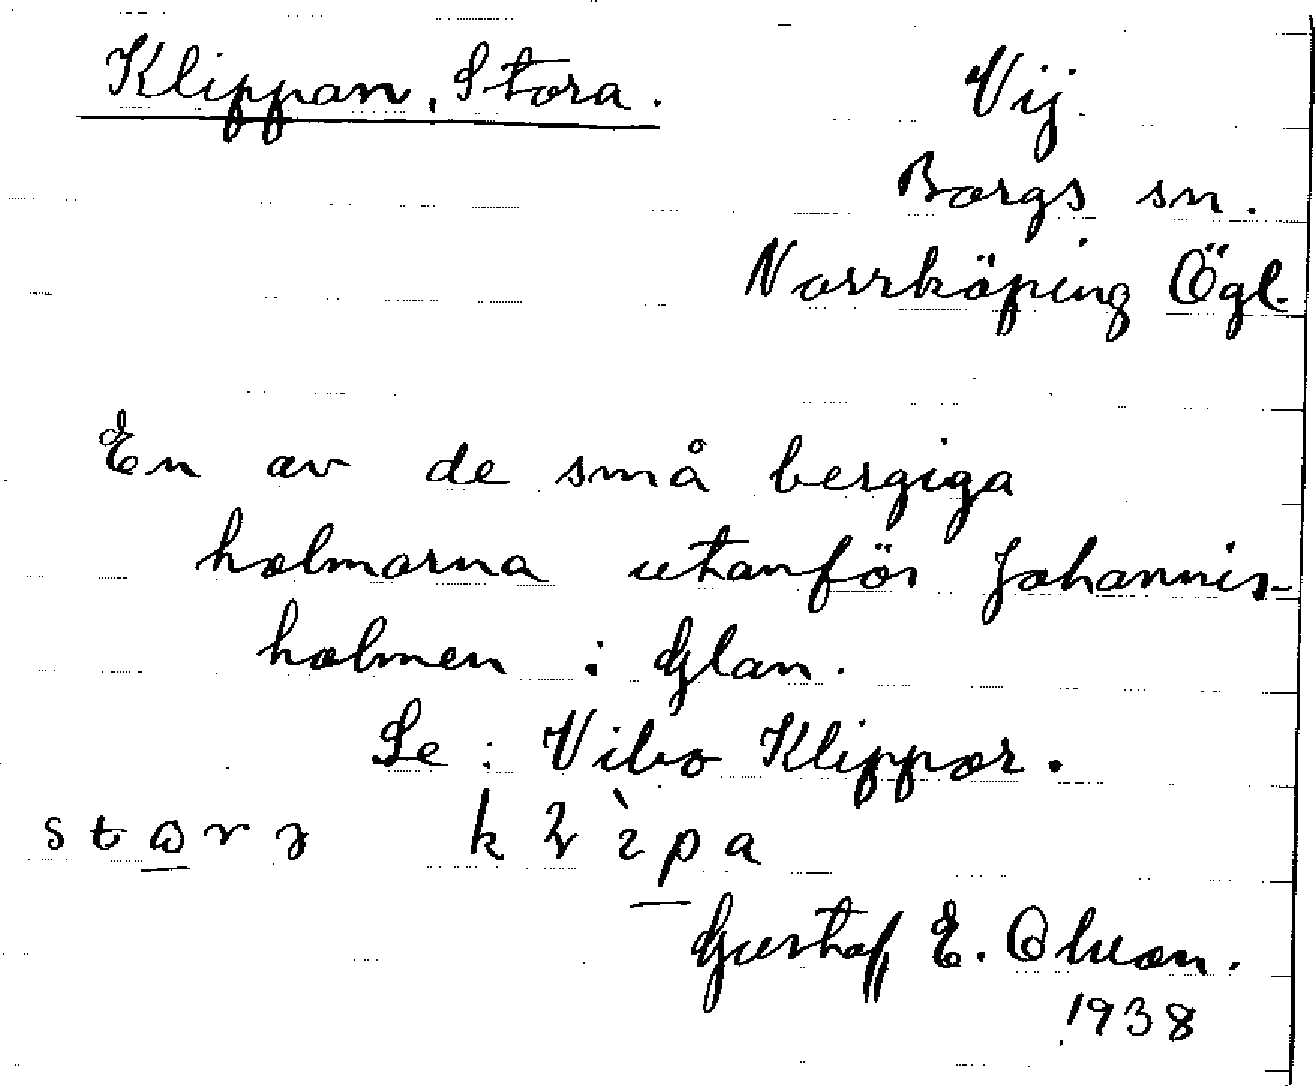 Klippan, Stora.
Vij.
Borgs sn.
Norrköping Ögl.
En av de små bergiga
holmarna utanför Johannis-
holmen i Glan.
Se: Vibo Klippor.
Gustaf E. Olsson.
1938